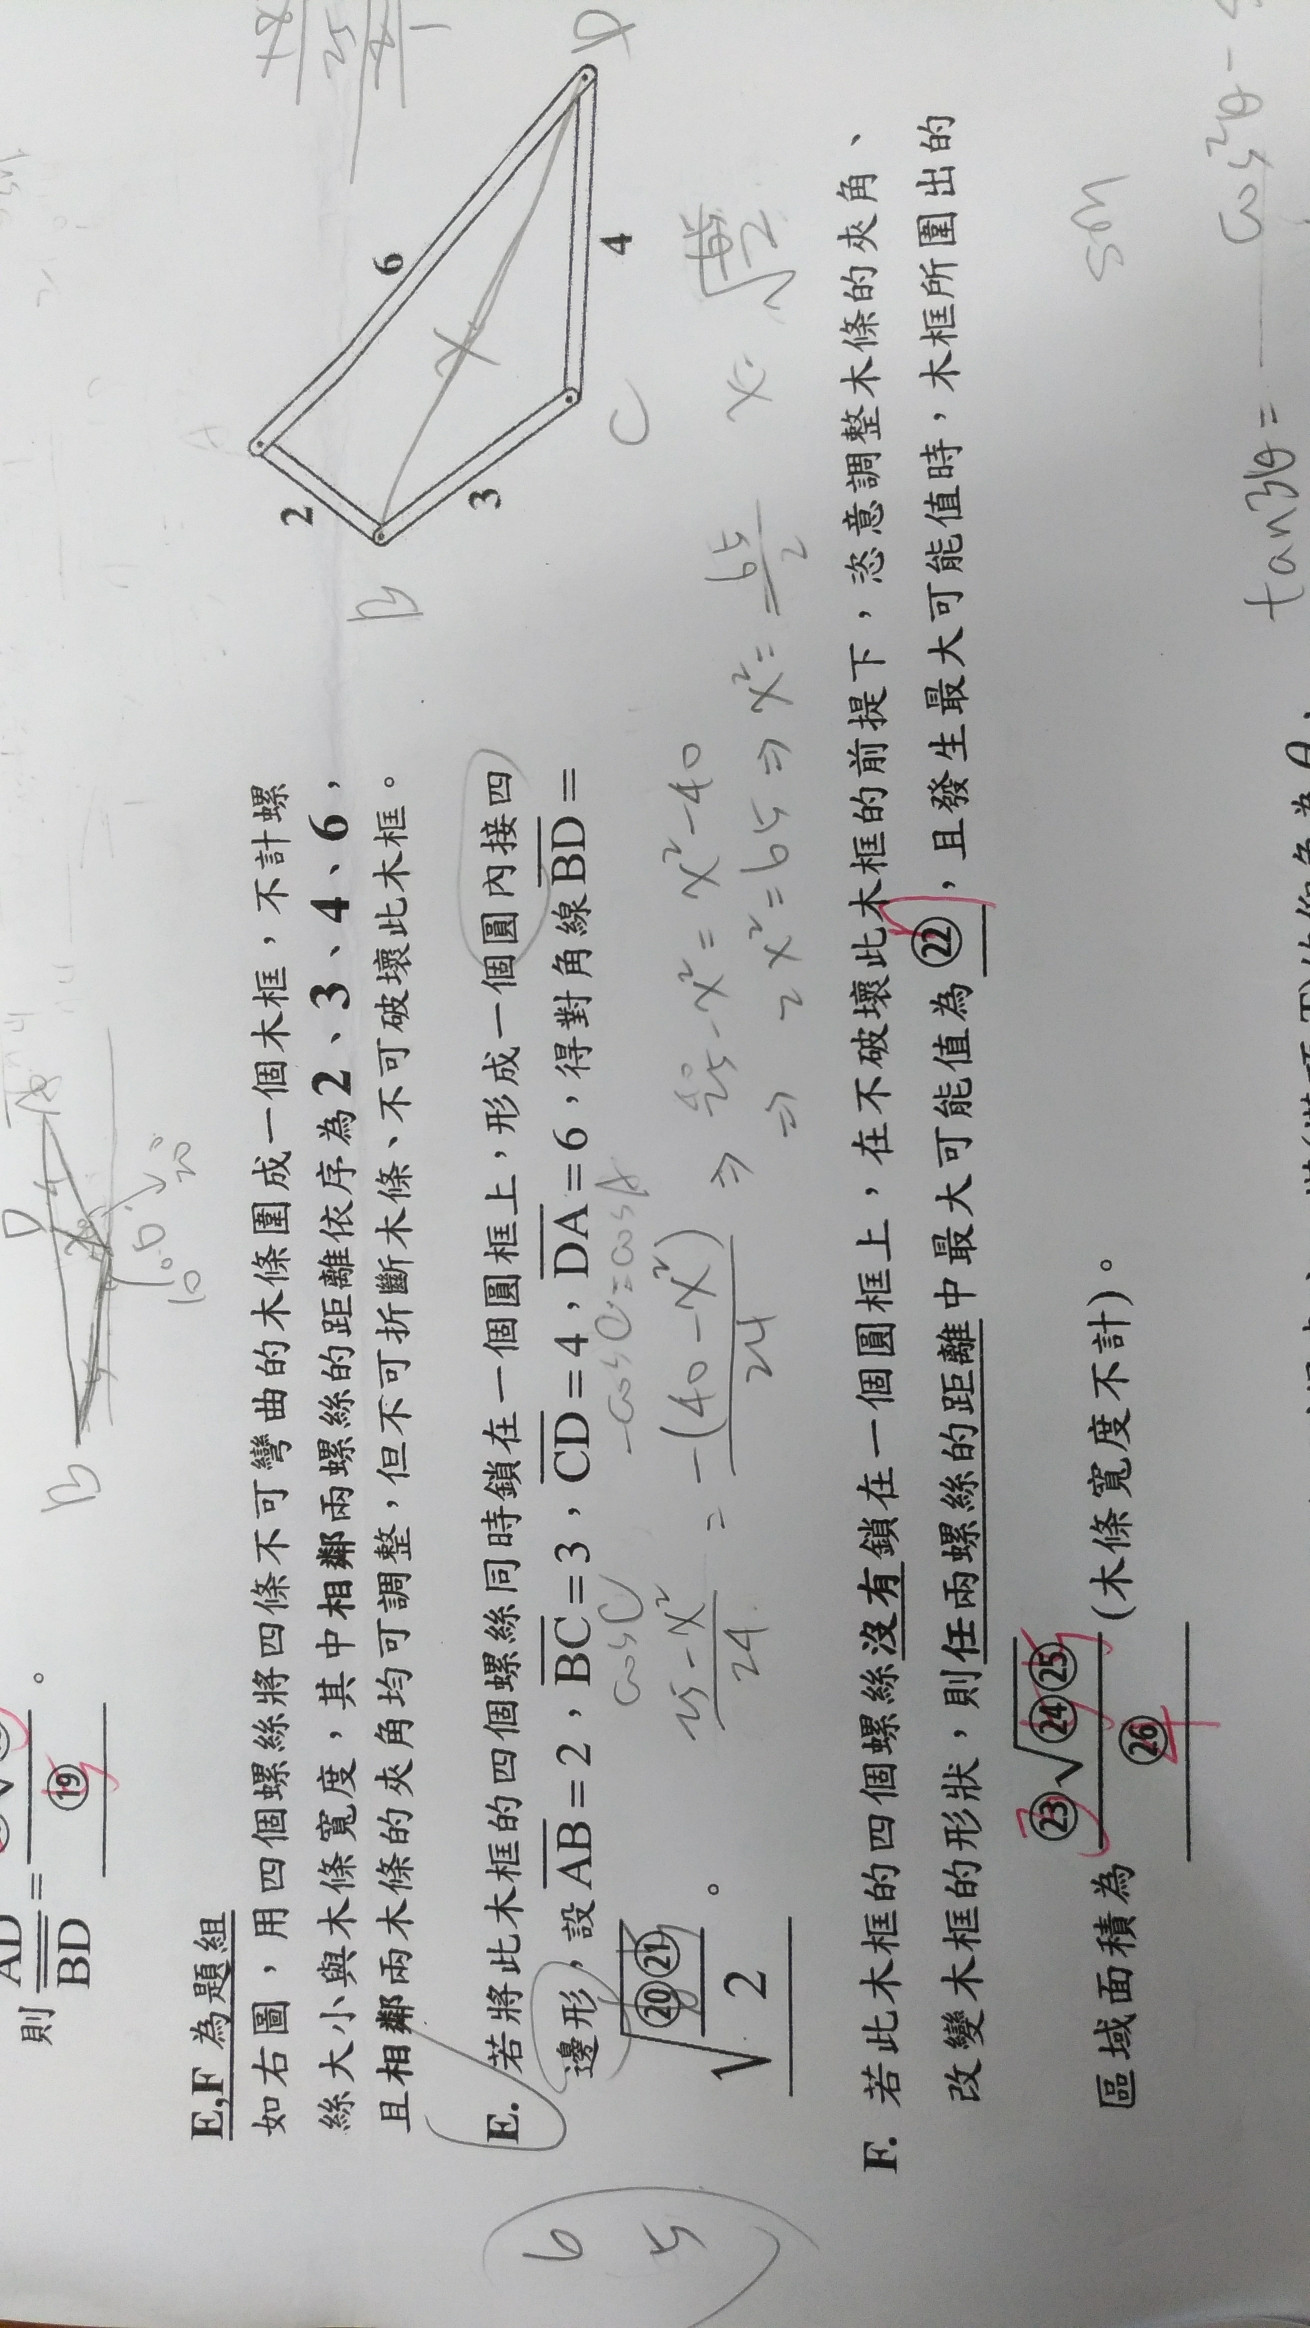 則 AD/BD = ⑲ 。
E,F 為題組
如右圖，用四個螺絲將四條不可彎曲的木條圍成一個木框，不計螺
絲大小與木條寬度，其中相鄰兩螺絲的距離依序為2、3、4、6，
且相鄰兩木條的夾角均可調整，但不可折斷木條、不可破壞此木框。
2
6
3
4
B
C
D
X
E. 若將此木框的四個螺絲同時鎖在一個圓框上，形成一個圓內接四
邊形，設AB=2，BC=3，CD=4，DA=6，得對角線BD=
√⑳㉑/2 。
cosC
-cosC=cosA
25-x²/24 = -(40-x²)/24 ⇒ 25-x²=x²-40
⇒ 2x²=65 ⇒ x²=65/2
6
5
F. 若此木框的四個螺絲沒有鎖在一個圓框上，在不破壞此木框的前提下，恣意調整木條的夾角、
改變木框的形狀，則任兩螺絲的距離中最大可能值為㉒，且發生最大可能值時，木框所圍出的
區域面積為 ㉓√㉔㉕/㉖ (木條寬度不計)。
tan3θ=